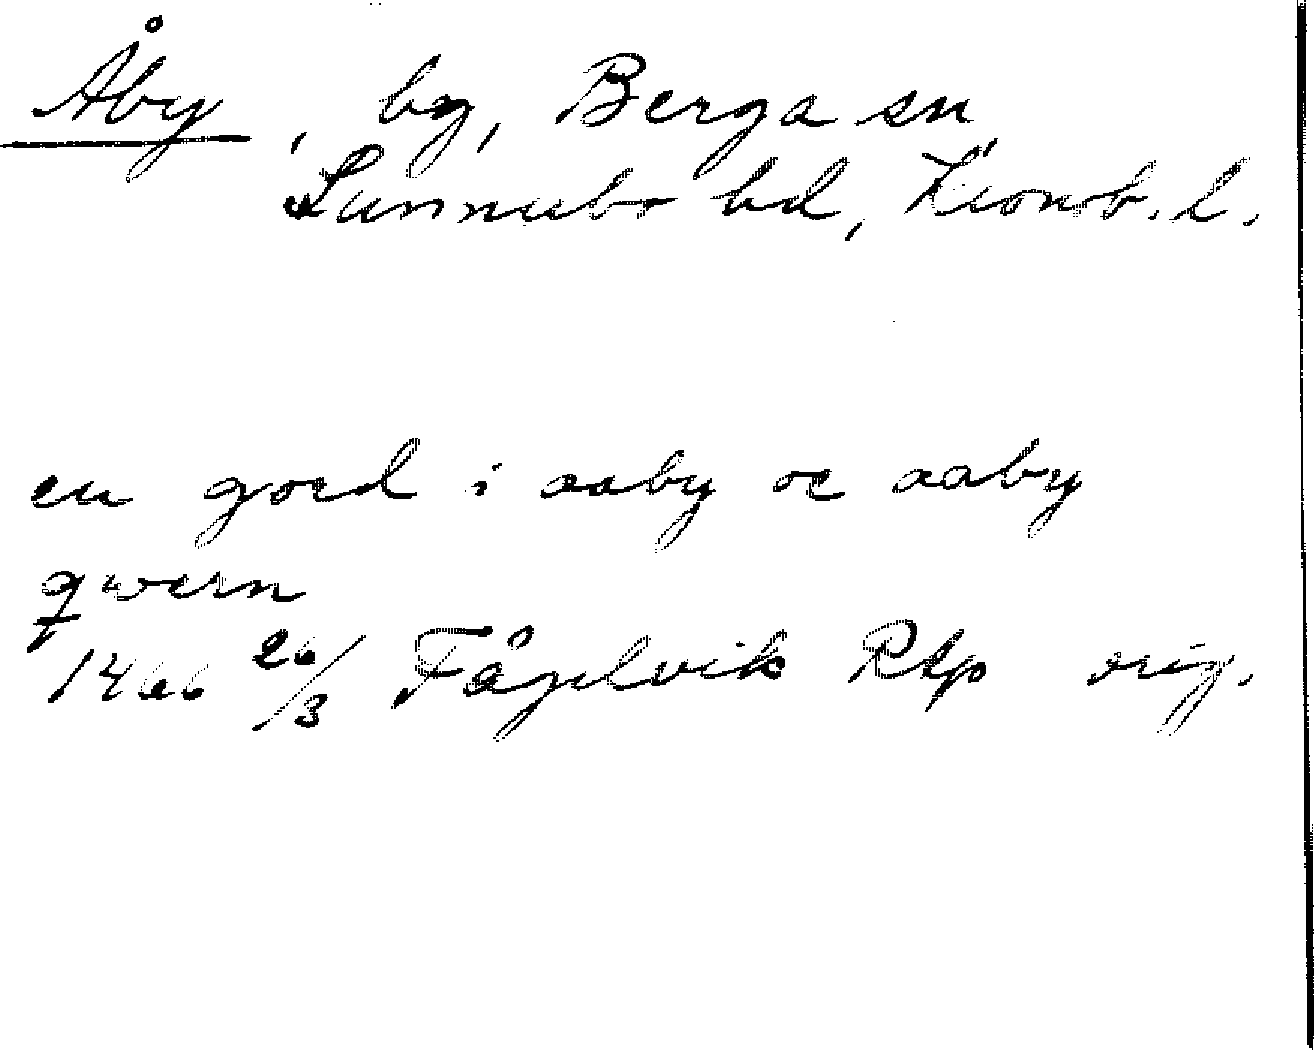 Åby, by, Berga sn,
Sunnerbo hd, Kronob. l.
en gord i aaby oc aaby
qwern
1466 26/3 Fågelvik Rtp orig.